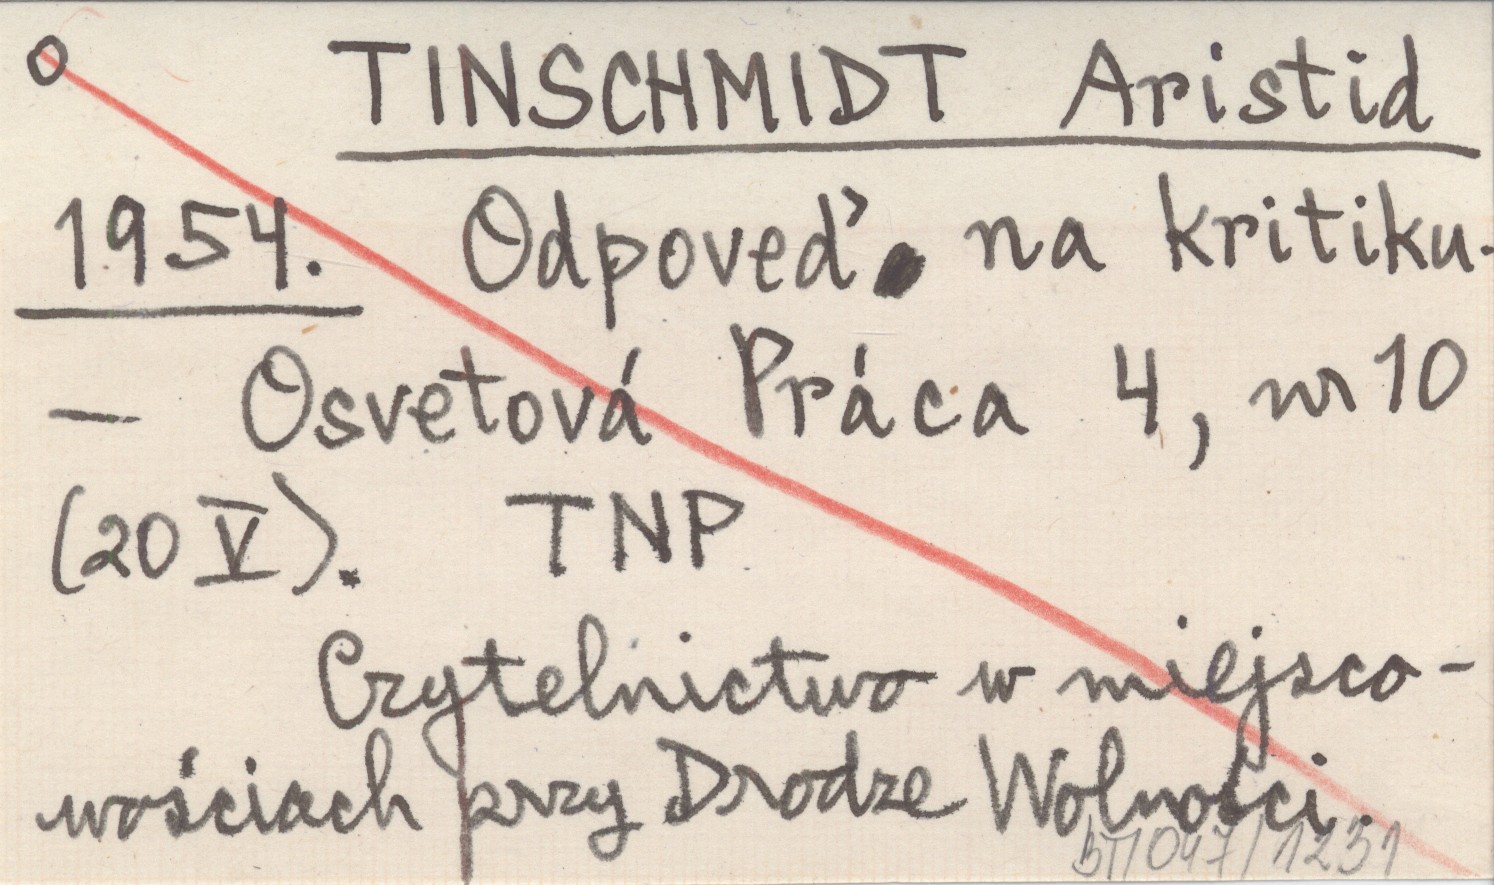 o TINSCHMIDT Aristid
1954. Odpoveď na kritiku.
— Osvetová Práca 4, nr 10
(20 V). TNP
Czytelnictwo w miejsco-
wościach przy Drodze Wolności.
BT/047/1231